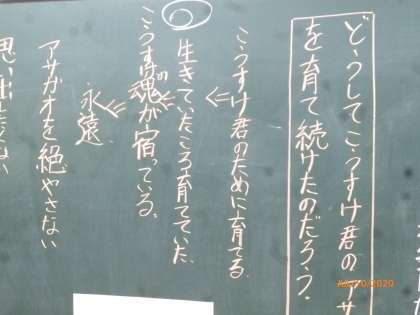 どうしてこうすけ君のアサ
を育て続けたのだろう。
こうすけ君のために育てる
生きていたころ育てていた
こうすけの魂が宿っている。
永遠
アサガオを絶やさない
思い出したくない